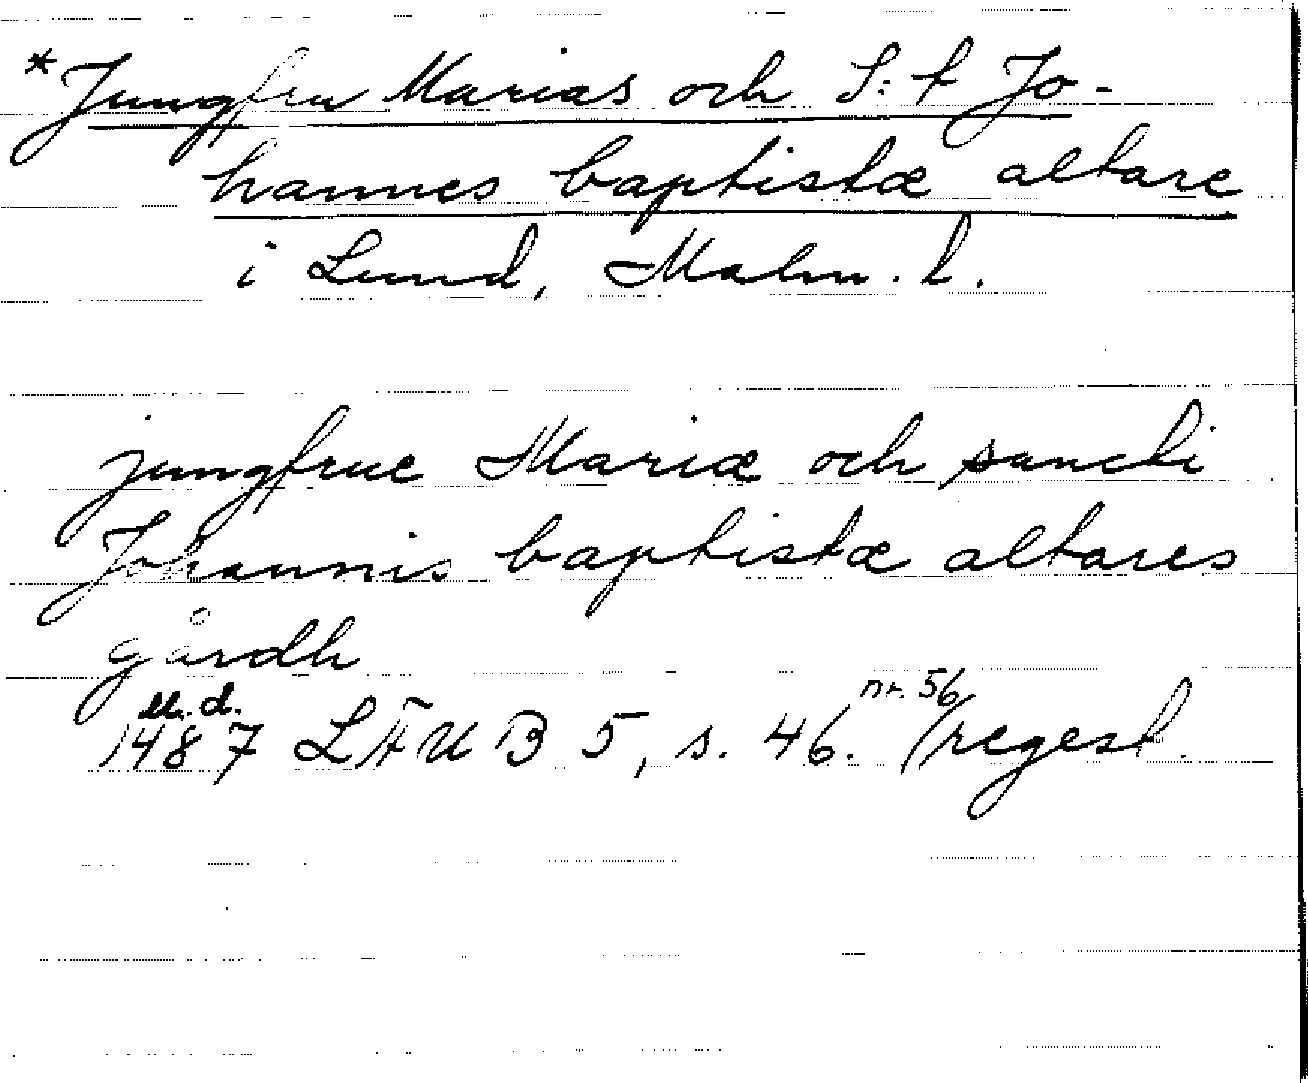 *Jungfru Marias och S:t Jo-
hannes baptistæ altare
i Lund, Malm. l.
jungfrue Mariæ och sancti
Johannis baptistæ altares
gårdh
u.d. nr. 56
1487 LÄUB 5, s. 46. (regest.